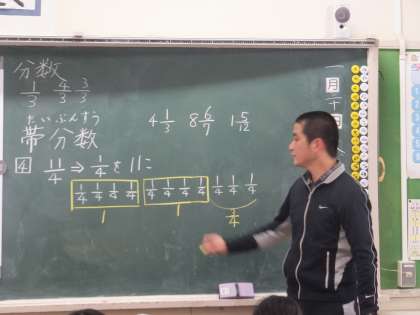 分数
1/3 4/3 3/3
たいぶんすう
帯分数
4 1/3 8 6/7 1 5/12
4 11/4 ⇒ 1/4を11こ
1/4 1/4 1/4 1/4 1/4 1/4 1/4 1/4 1/4 1/4 1/4
1 1
一月十